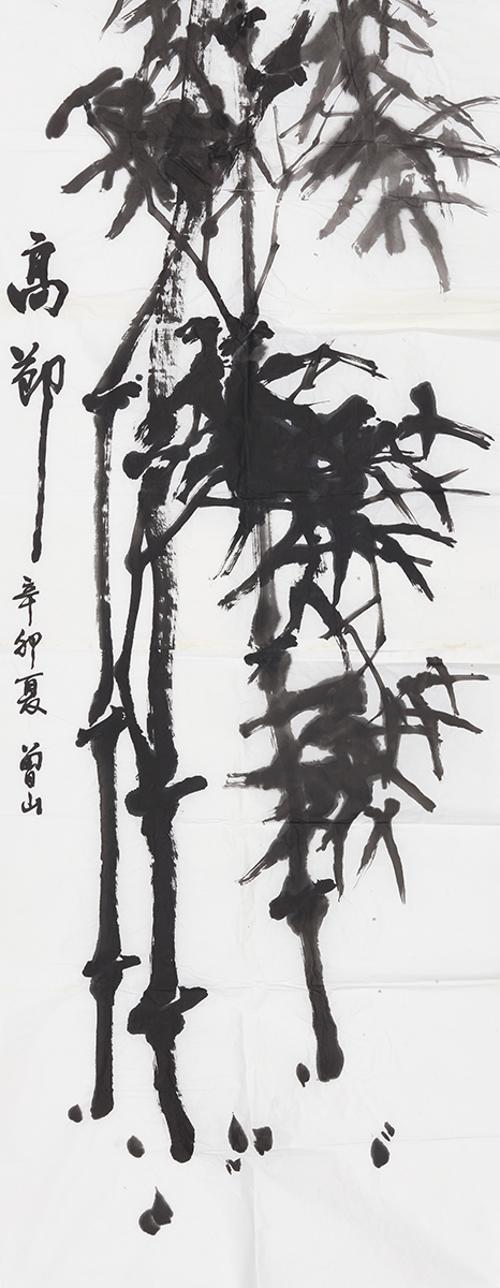 高節
辛卯夏 曾山